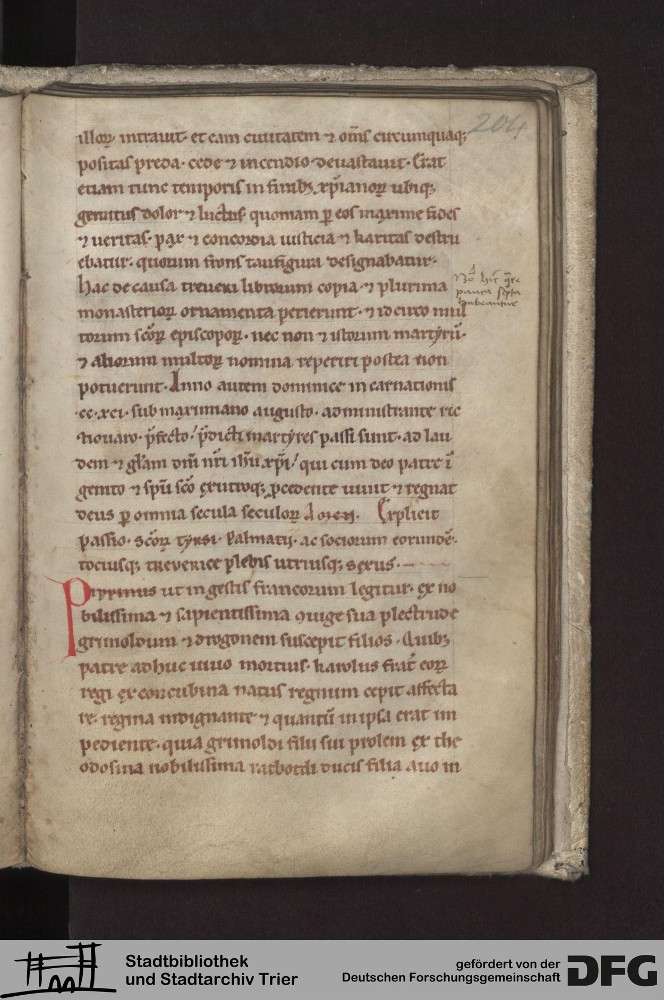 204
illoꝝ intrauit· et eam ciuitatem ⁊ om̄s circumquaqꝫ
positas preda· cede ⁊ incendio deuastauit· Erat
etiam tunc temporis in finibꝫ xp̄ianoꝝ ubiqꝫ
gemitus dolor ⁊ luctus· quoniam ꝑ eos maxime fides
⁊ ueritas· pax ⁊ concordia iusticia ⁊ karitas destru
ebatur· quorum frons taufigura designabatur·
hac de causa treueri librorum copia· ⁊ plurima
monasterioꝝ ornamenta perierunt· ⁊ idcirco mul
torum sc̄oꝝ episcopoꝝ· nec non ⁊ istorum martyrū·
⁊ aliorum multoꝝ nomina reperiri postea non
potuerunt· Anno autem dominice incarnationis
·cc·xci· sub maximiano augusto· administrante ric
tiouaro p̄fecto· p̄dicti martyres passi sunt· ad lau
dem ⁊ gl̄am dn̄i nr̄i ihū xp̄i· qui cum deo patre ī
genito ⁊ sp̄u sc̄o ex utroqꝫ ꝓcedente uiuit ⁊ regnat
deus ꝑ omnia secula seculoꝝ Amen· Explicit
passio· scōꝝ tyrsi· palmatii· ac sociorum eorundē·
tociusqꝫ treuerice plebis utriusqꝫ sexus·
Pippinus ut in gestis francorum legitur· ex no
bilissima ⁊ sapientissima coniuge sua plectrude
grimoldum ⁊ drogonem suscepit filios· Quibꝫ
patre adhuc uiuo mortuis· karolus frat̄ eoꝝ
regi ex concubina natus regnum cepit affecta
re· regina indignante ⁊ quantū in ipsa erat im
pediente· quia grimoldi filii sui prolem ex the
odosina nobilissima ratbotdi ducis filia auo in
pauca
habeantur
Stadtbibliothek
und Stadtarchiv Trier
gefördert von der
Deutschen Forschungsgemeinschaft
DFG